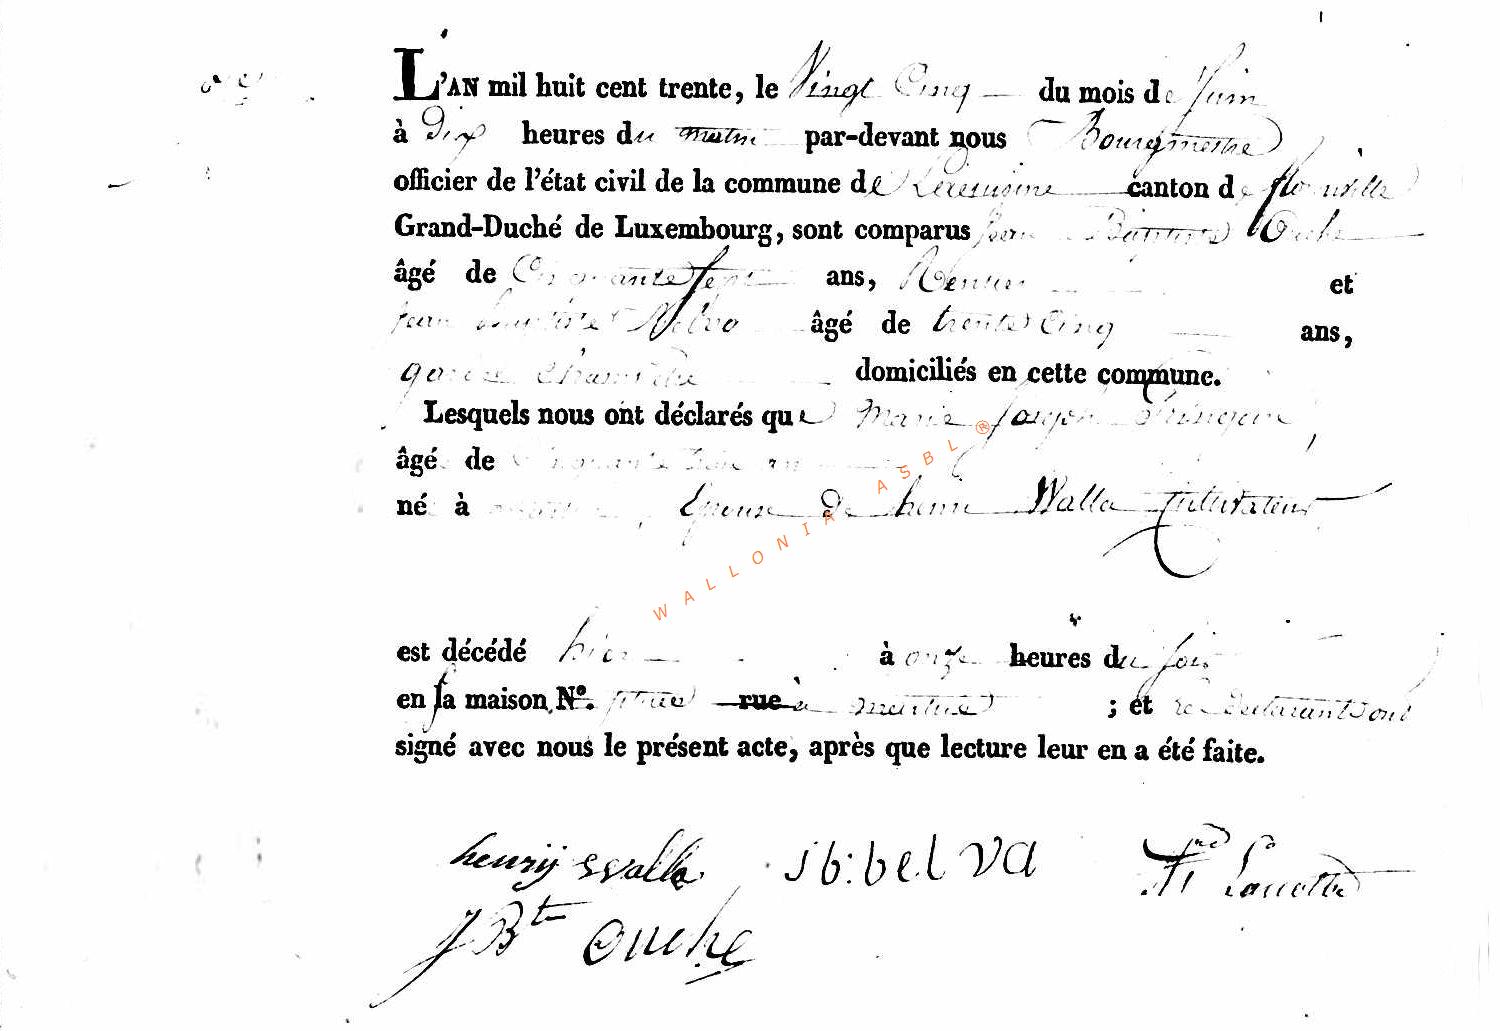 L'AN mil huit cent trente, le Vingt Cinq du mois de juin
à Dix heures du matin par-devant nous Bourgmestre
officier de l'état civil de la commune de canton de florenville
Grand-Duché de Luxembourg, sont comparus jean Baptiste Ouche
âgé de Cinquante sept ans, Rentier et
jean baptiste Belva âgé de trente Cinq ans,
garde Champêtre domiciliés en cette commune.
Lesquels nous ont déclarés que Marie
âgé de Cinquante
né à Epouse de henri Walla Cultivateur
WALLONIA ASBL ®
est décédé hier à onze heures du soir
en sa maison N°. rue à ; et les déclarants ont
signé avec nous le présent acte, après que lecture leur en a été faite.
henrÿ Walla jb: belva
J Bte Ouche